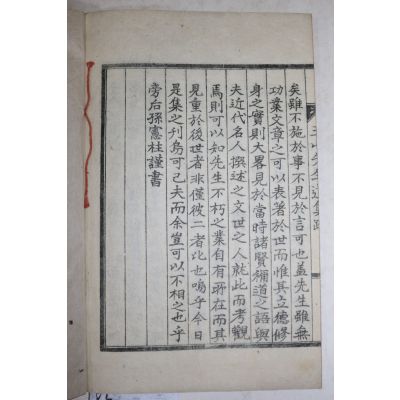 矣雖不施於事不見於言可也盖先生雖無
功業文章之可以表著於世而惟其立德修
身之實則大畧見於當時諸賢稱道之語與
夫近代名人撰述之文世之人就此而考觀
焉則可以知先生不朽之業自有所在而其
見重於後世者非僅彼二者比也嗚乎今日
是集之刊烏可已夫而余豈可以不相之也乎
旁后孫憲柱謹書
先生遺集跋